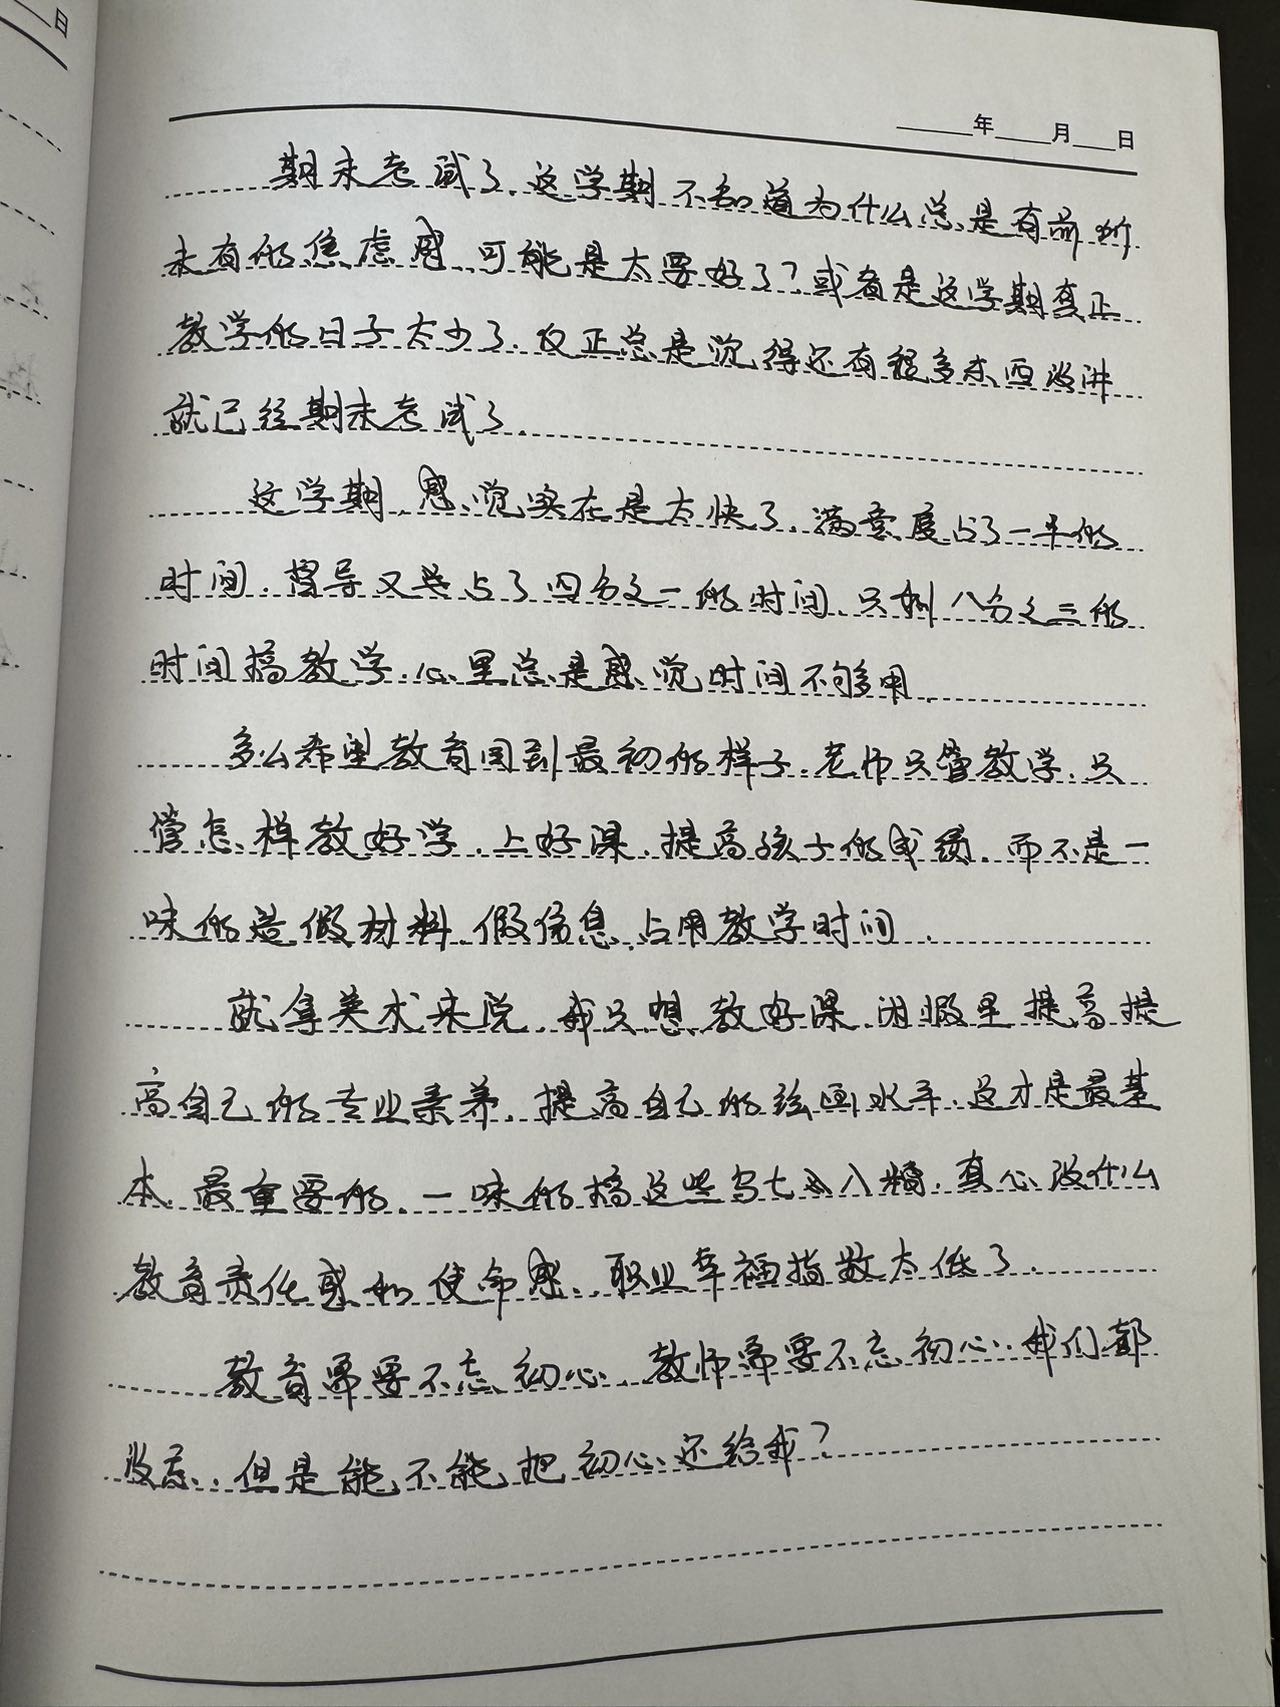 日
年 月 日
期末考试了,这学期不知道为什么总是有前所
未有的焦虑感,可能是太要好了?或者是这学期真正
教学的日子太少了,反正总是觉得还有很多东西没讲
就已经期末考试了.
这学期,感觉实在是太快了,满意度占了一半的
时间,督导又是占了四分之一的时间,只剩八分之三的
时间搞教学,心里总是感觉时间不够用.
多么希望教育回到最初的样子,老师只管教学,只
管怎样教好学,上好课,提高孩子的成绩,而不是一
味的造假材料,假信息,占用教学时间.
就拿美术来说,我只想教好课,闲暇里提高提
高自己的专业素养,提高自己的绘画水平,这才是最基
本,最重要的,一味的搞这些乌七八糟,真心没什么
教育责任感和使命感,职业幸福指数太低了.
教育需要不忘初心,教师需要不忘初心,我们都
没忘,但是能不能把初心还给我?